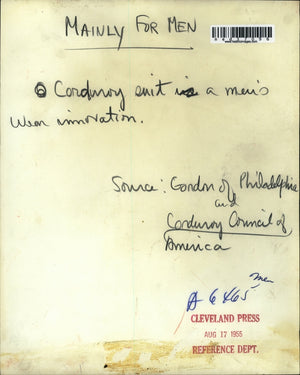 MAINLY FOR MEN
Corduroy suit is a men's
wear innovation.
Source: Gordon of Philadelphia
and
Corduroy Council of
America
men
A 6465
CLEVELAND PRESS
AUG 17 1955
REFERENCE DEPT.